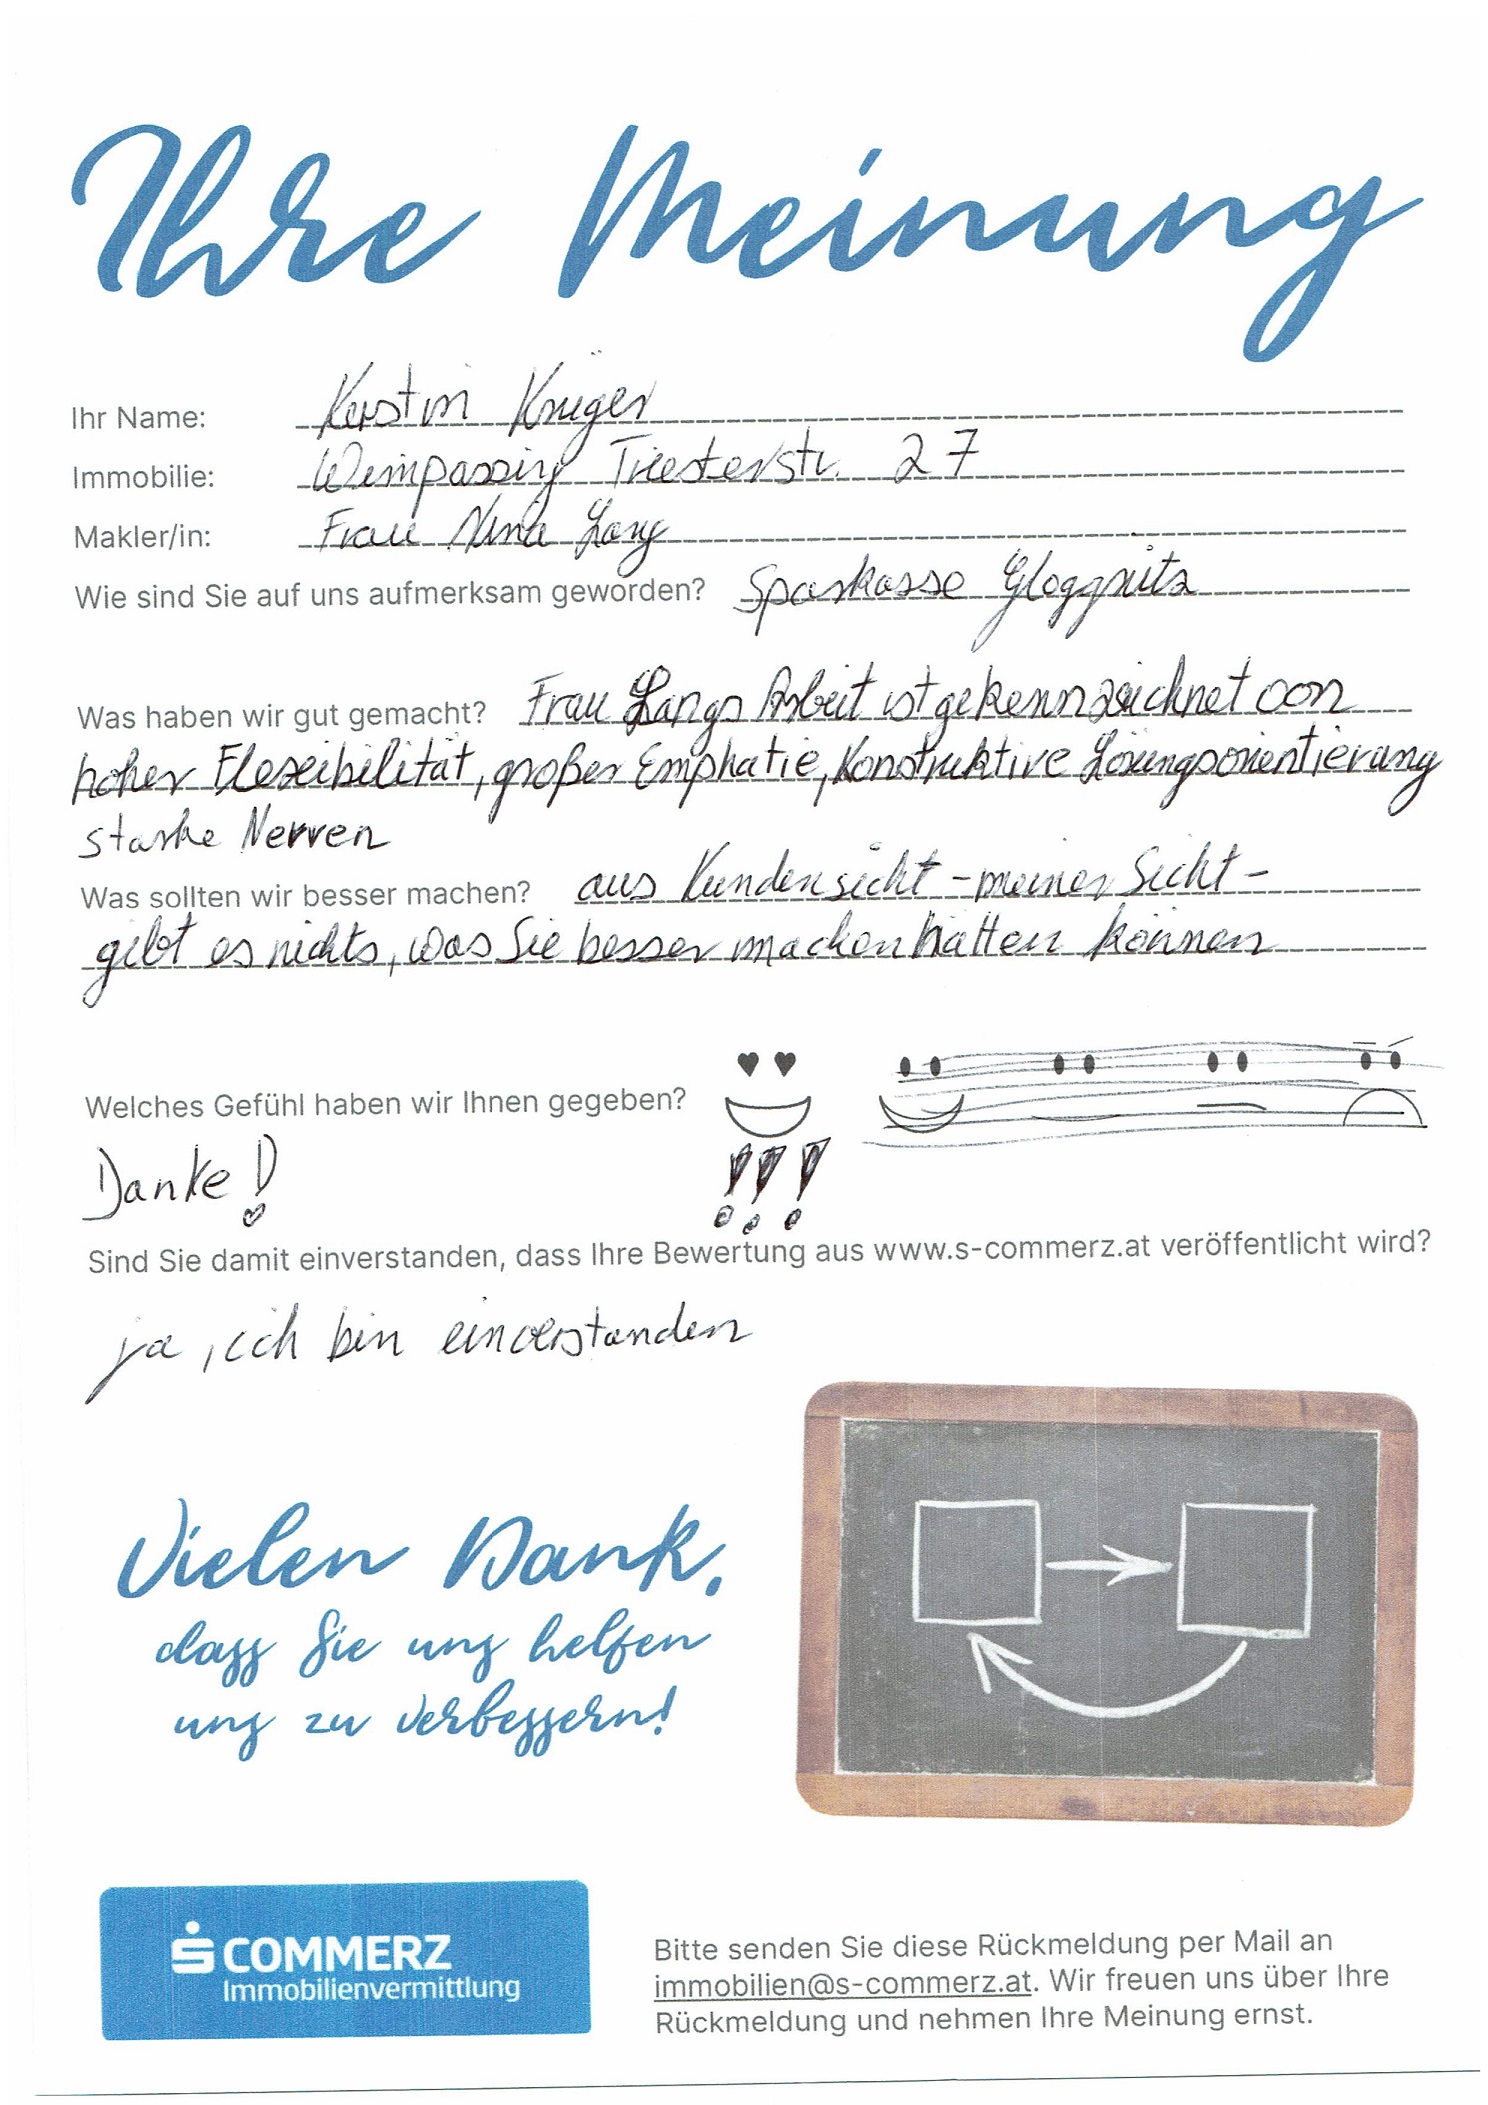 Ihre Meinung
Ihr Name: Kerstin Krüger
Immobilie: Wimpassing Triesterstr. 27
Makler/in: Frau Nina Lang
Wie sind Sie auf uns aufmerksam geworden? Sparkasse Gloggnitz
Was haben wir gut gemacht? Frau Langs Arbeit ist gekennzeichnet von
hoher Flexibilität, großer Emphatie, Konstruktive Lösungsorientierung
starke Nerven
Was sollten wir besser machen? aus Kundensicht - meiner Sicht -
gibt es nichts, was Sie besser machen hätten können
Welches Gefühl haben wir Ihnen gegeben?
Danke! !!!
Sind Sie damit einverstanden, dass Ihre Bewertung aus www.s-commerz.at veröffentlicht wird?
ja, ich bin einverstanden
Vielen Dank,
dass Sie uns helfen
uns zu verbessern!
S COMMERZ
Immobilienvermittlung
Bitte senden Sie diese Rückmeldung per Mail an
immobilien@s-commerz.at. Wir freuen uns über Ihre
Rückmeldung und nehmen Ihre Meinung ernst.